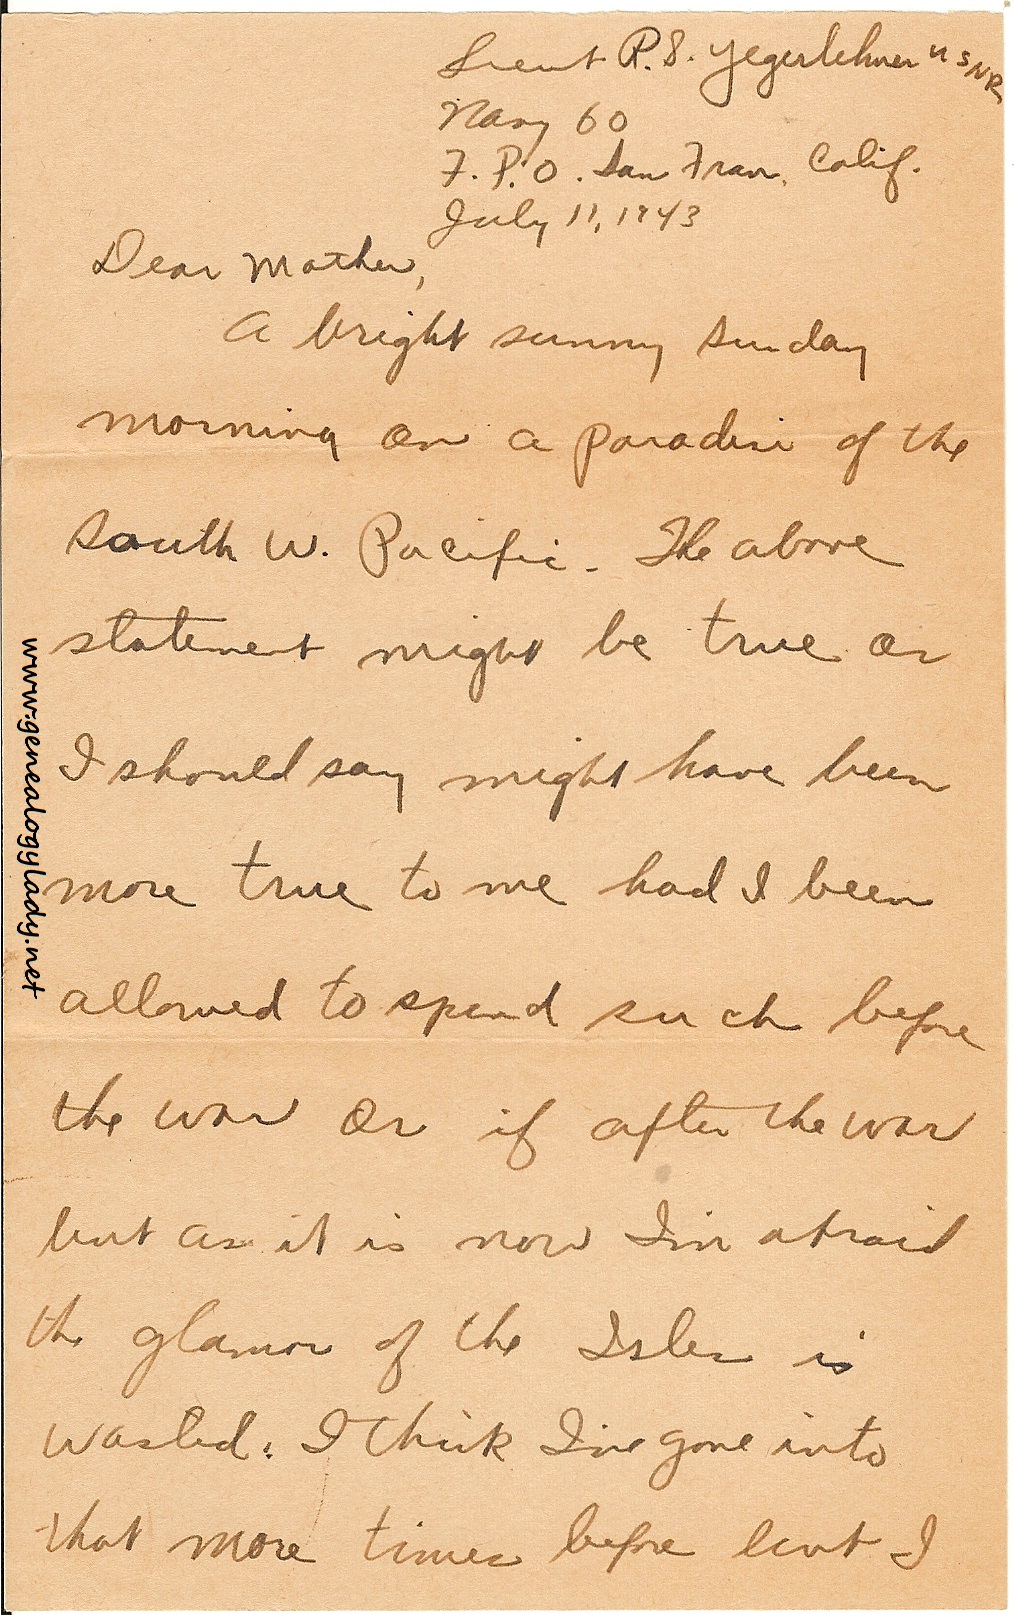 Lieut R.S. Yegerlehner USNR
Navy 60
F.P.O. San Fran, Calif.
July 11, 1943
Dear Mother,
A bright sunny Sunday
morning on a paradise of the
South W. Pacific. The above
statement might be true or
I should say might have been
more true to me had I been
allowed to spend such before
the war or if after the war
but as it is now I'm afraid
the glamor of the Isles is
wasted. I think I've gone into
that more times before but I
www.genealogylady.net